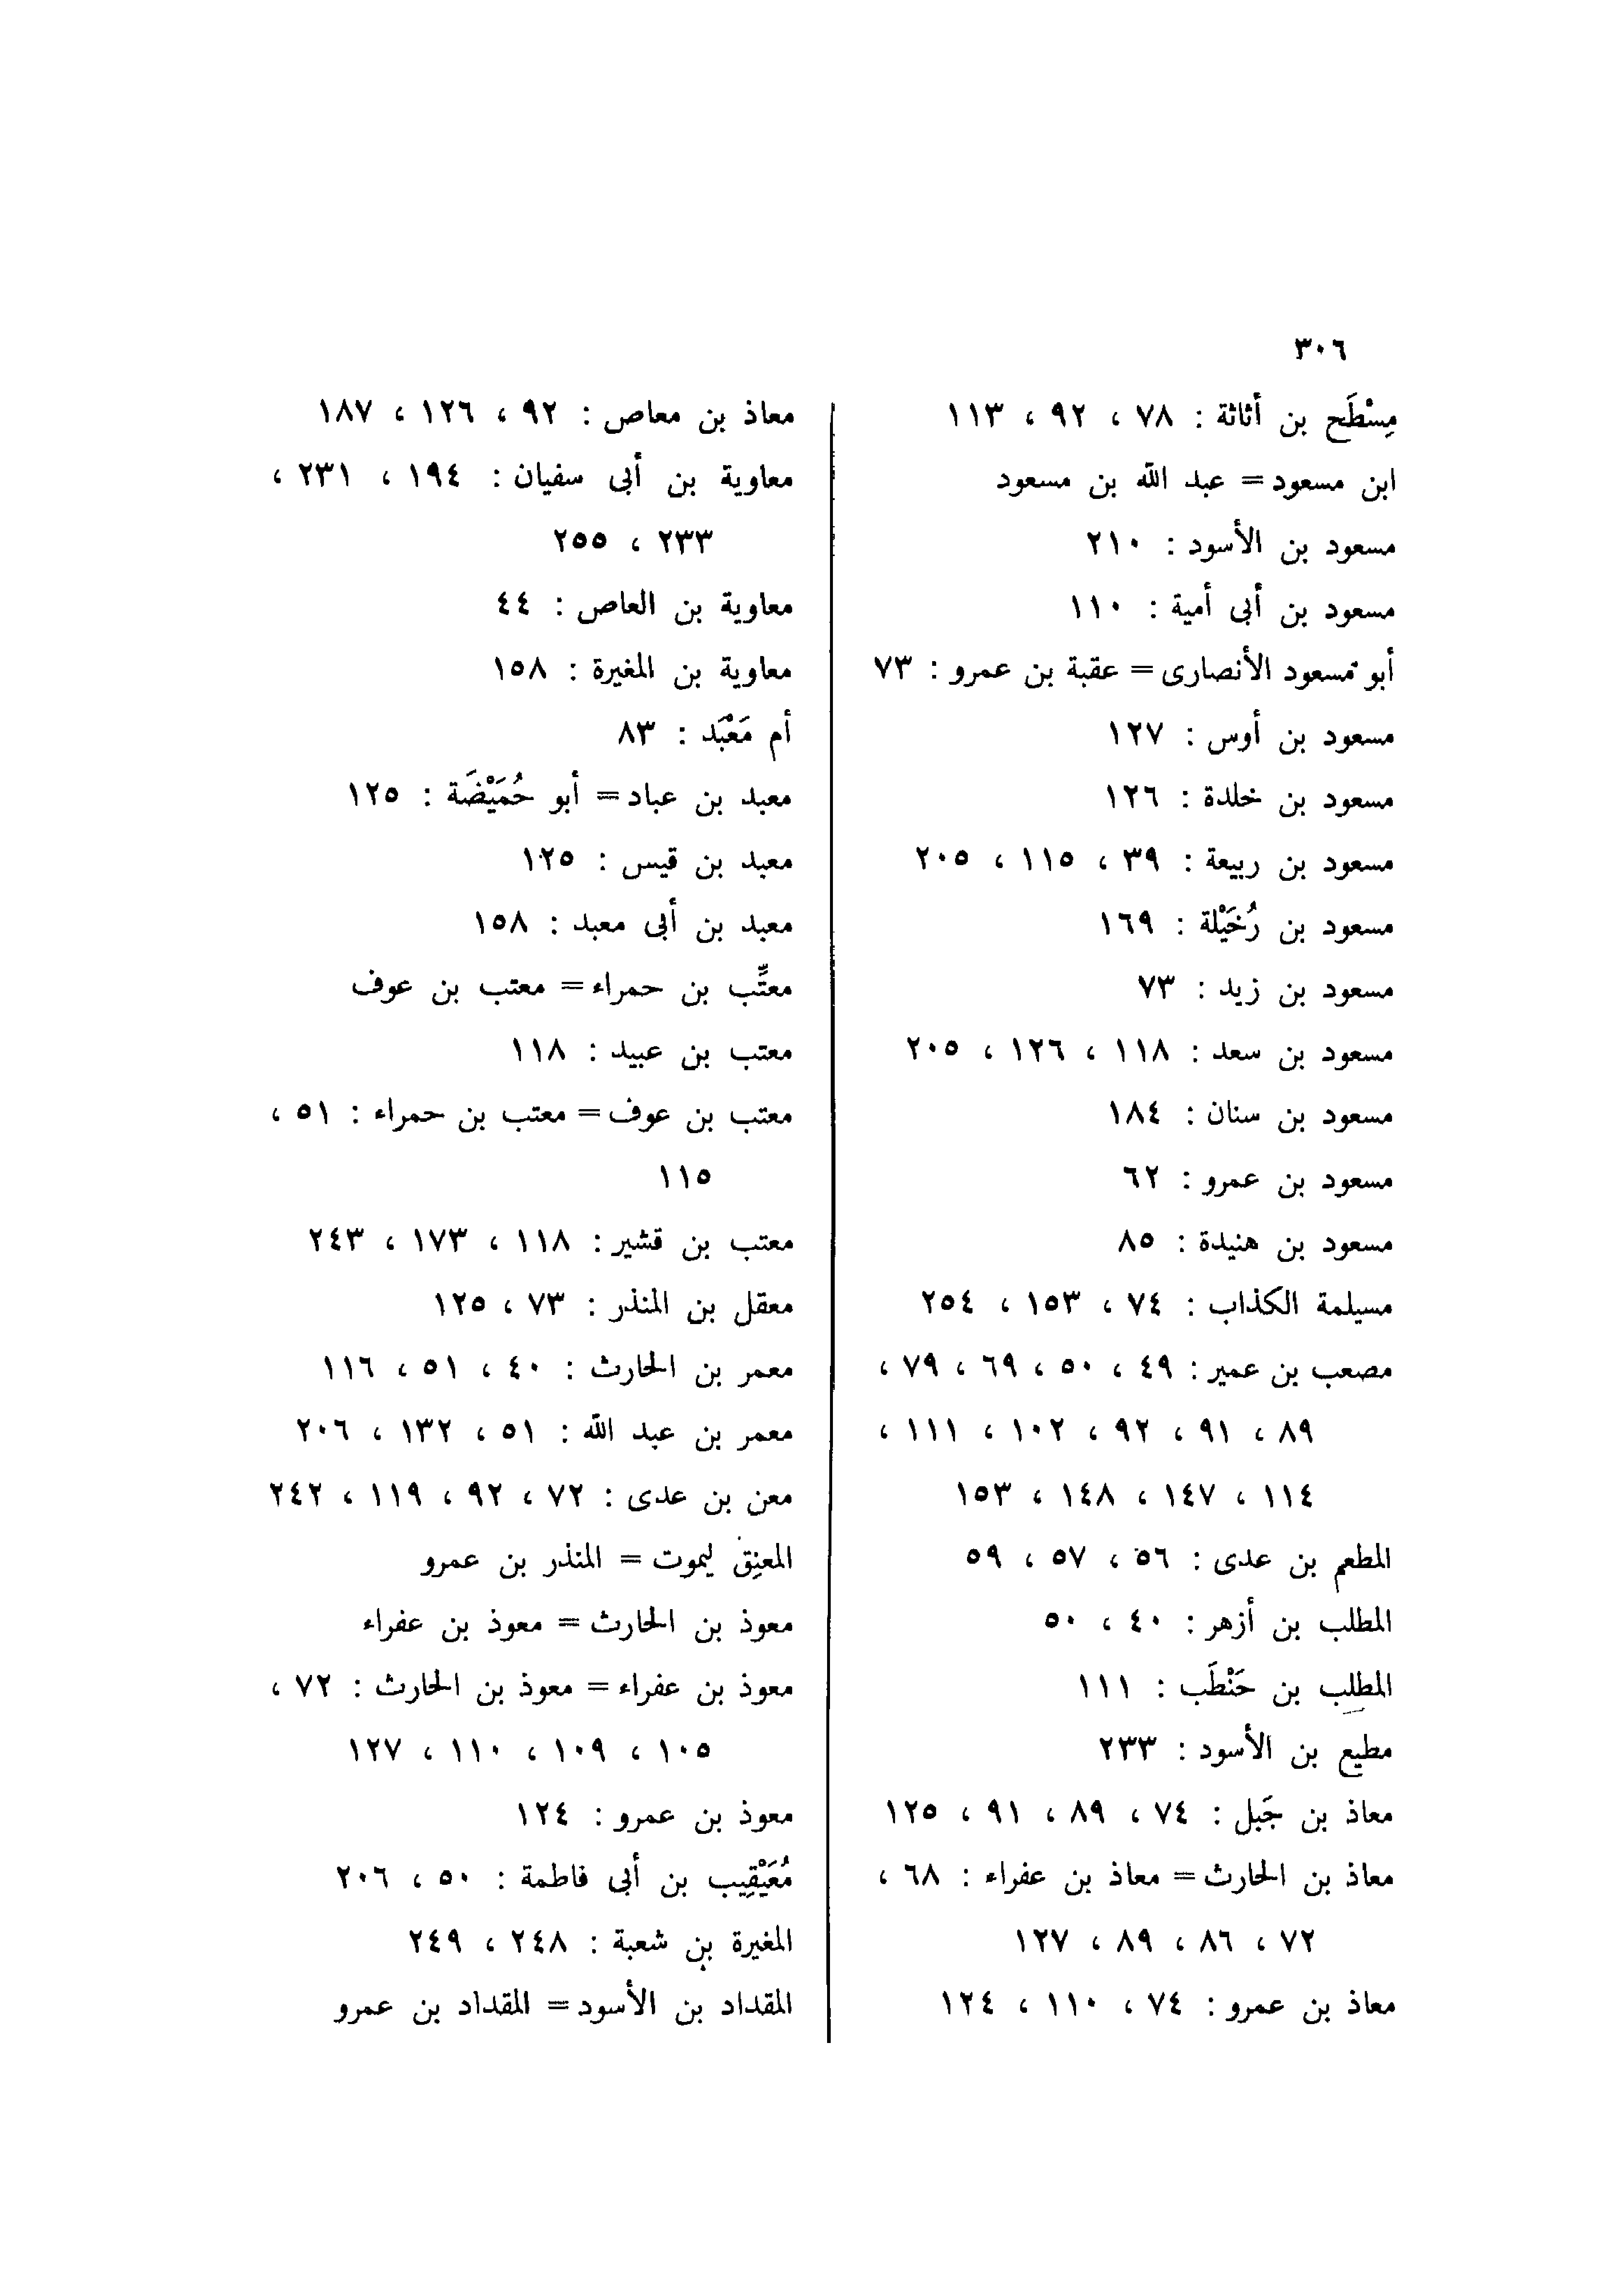 ٣٠٦
مِسْطَح بن أثاثة : ٧٨ ، ٩٢ ، ١١٣
ابن مسعود = عبد الله بن مسعود
مسعود بن الأسود : ٢١٠
مسعود بن أبى أمية : ١١٠
أبو مسعود الأنصارى = عقبة بن عمرو : ٧٣
مسعود بن أوس : ١٢٧
مسعود بن خلدة : ١٢٦
مسعود بن ربيعة : ٣٩ ، ١١٥ ، ٢٠٥
مسعود بن رُخَيْلة : ١٦٩
مسعود بن زيد : ٧٣
مسعود بن سعد : ١١٨ ، ١٢٦ ، ٢٠٥
مسعود بن سنان : ١٨٤
مسعود بن عمرو : ٦٢
مسعود بن هنيدة : ٨٥
مسيلمة الكذاب : ٧٤ ، ١٥٣ ، ٢٥٤
مصعب بن عمير : ٤٩ ، ٥٠ ، ٦٩ ، ٧٩ ،
٨٩ ، ٩١ ، ٩٢ ، ١٠٢ ، ١١١ ،
١١٤ ، ١٤٧ ، ١٤٨ ، ١٥٣
المطعم بن عدى : ٥٦ ، ٥٧ ، ٥٩
المطلب بن أزهر : ٤٠ ، ٥٠
المطلب بن حَنْطَب : ١١١
مطيع بن الأسود : ٢٣٣
معاذ بن جَبل : ٧٤ ، ٨٩ ، ٩١ ، ١٢٥
معاذ بن الحارث = معاذ بن عفراء : ٦٨ ،
٧٢ ، ٨٦ ، ٨٩ ، ١٢٧
معاذ بن عمرو : ٧٤ ، ١١٠ ، ١٢٤
معاذ بن معاص : ٩٢ ، ١٢٦ ، ١٨٧
معاوية بن أبى سفيان : ١٩٤ ، ٢٣١ ،
٢٣٣ ، ٢٥٥
معاوية بن العاص : ٤٤
معاوية بن المغيرة : ١٥٨
أم مَعْبَد : ٨٣
معبد بن عباد = أبو حُمَيْضَة : ١٢٥
معبد بن قيس : ١٢٥
معبد بن أبى معبد : ١٥٨
معتِّب بن حمراء = معتب بن عوف
معتب بن عبيد : ١١٨
معتب بن عوف = معتب بن حمراء : ٥١ ،
١١٥
معتب بن قشير : ١١٨ ، ١٧٣ ، ٢٤٣
معقل بن المنذر : ٧٣ ، ١٢٥
معمر بن الحارث : ٤٠ ، ٥١ ، ١١٦
معمر بن عبد الله : ٥١ ، ١٣٢ ، ٢٠٦
معن بن عدى : ٧٢ ، ٩٢ ، ١١٩ ، ٢٤٢
المعنِق ليموت = المنذر بن عمرو
معوذ بن الحارث = معوذ بن عفراء
معوذ بن عفراء = معوذ بن الحارث : ٧٢ ،
١٠٥ ، ١٠٩ ، ١١٠ ، ١٢٧
معوذ بن عمرو : ١٢٤
مُعَيْقِيب بن أبى فاطمة : ٥٠ ، ٢٠٦
المغيرة بن شعبة : ٢٤٨ ، ٢٤٩
المقداد بن الأسود = المقداد بن عمرو